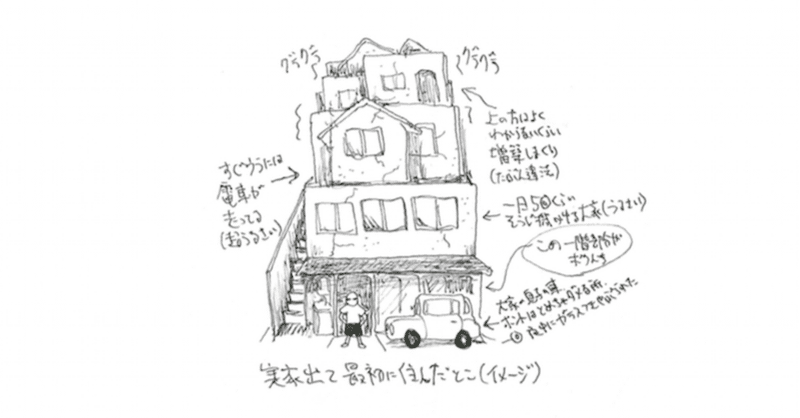 グラグラ
グラグラ
上の方はよく
わからないくらい
増築しまくり
(たぶん違法)
すぐウラには
電車が
走ってる
(超うるさい)
一日5回くらい
そうじ機かける大家(うるさい)
この一階部分が
ボクんち
大家の息子の車
ホントはとめちゃダメな所
夜中にガラス
実家出て最初に住んだとこ(イメージ)